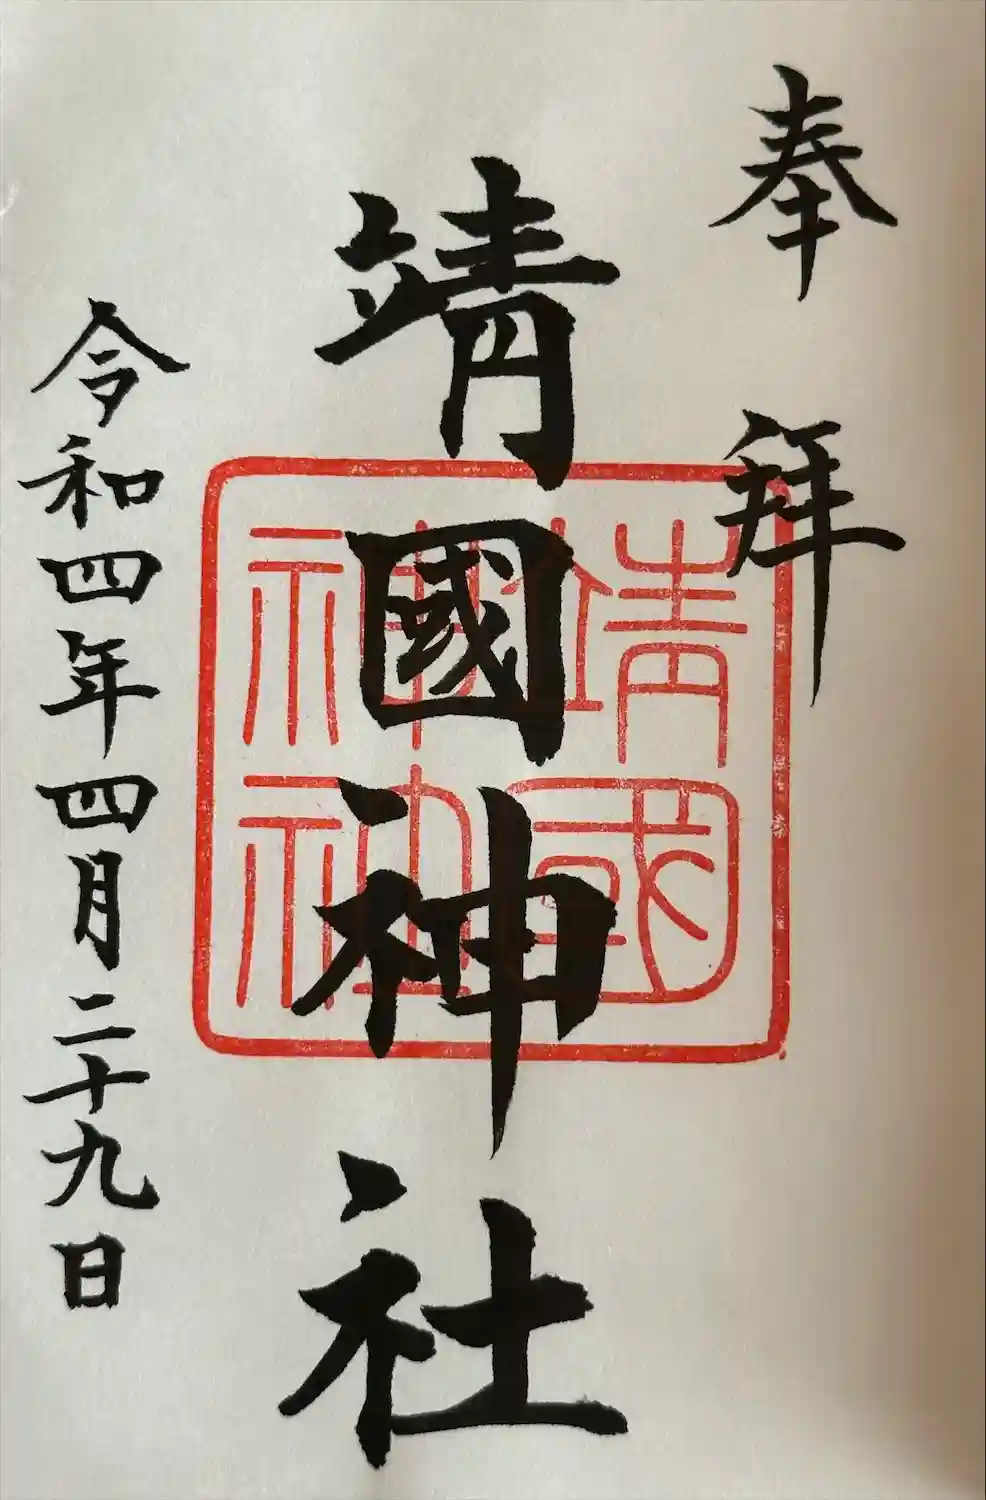 奉拜
靖國神社
靖國神社
令和四年四月二十九日